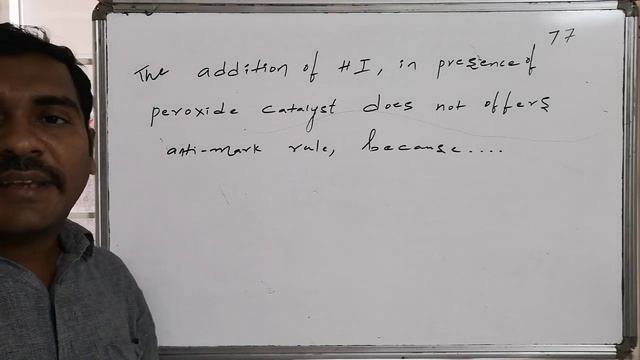 77
The addition of HI, in presence of
peroxide catalyst does not offers
anti-mark rule, because....